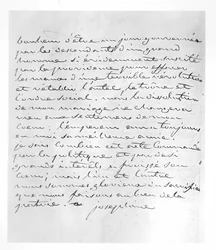 bonheur d'être un jour gouvernée
par les descendants d'un grand
homme si évidemment suscité
par la providence pour effacer
les maux d'une terrible révolution
et rétablir l'autel, le trône et
l'ordre social. mais la dissolution
de mon mariage ne changera
rien aux sentimens de mon
coeur. l'empereur aura toujours
en moi sa meilleure amie
je sais combien cet acte commandé
par la politique et par de si
grands intérêts a froissé son
coeur; mais l'un et l'autre
nous sommes glorieux du sacrifice
que nous faisons au bien de la
patrie.
josephine